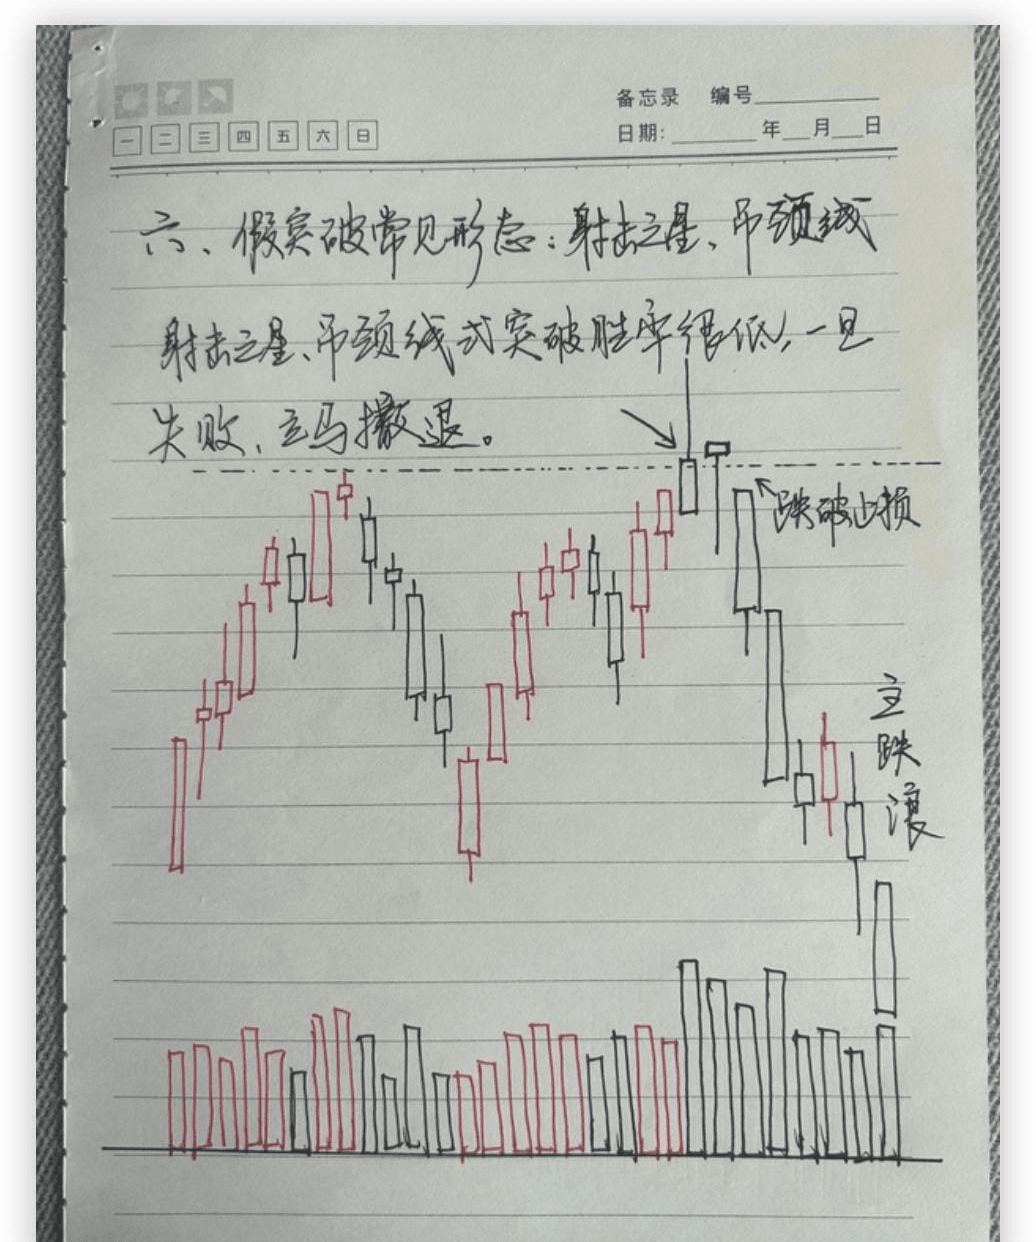 备忘录 编号
一 二 三 四 五 六 日
日期: 年 月 日
六、假突破常见形态：射击之星、吊颈线
射击之星、吊颈线式突破胜率很低，一旦
失败，立马撤退。
跌破止损
主
跌
浪